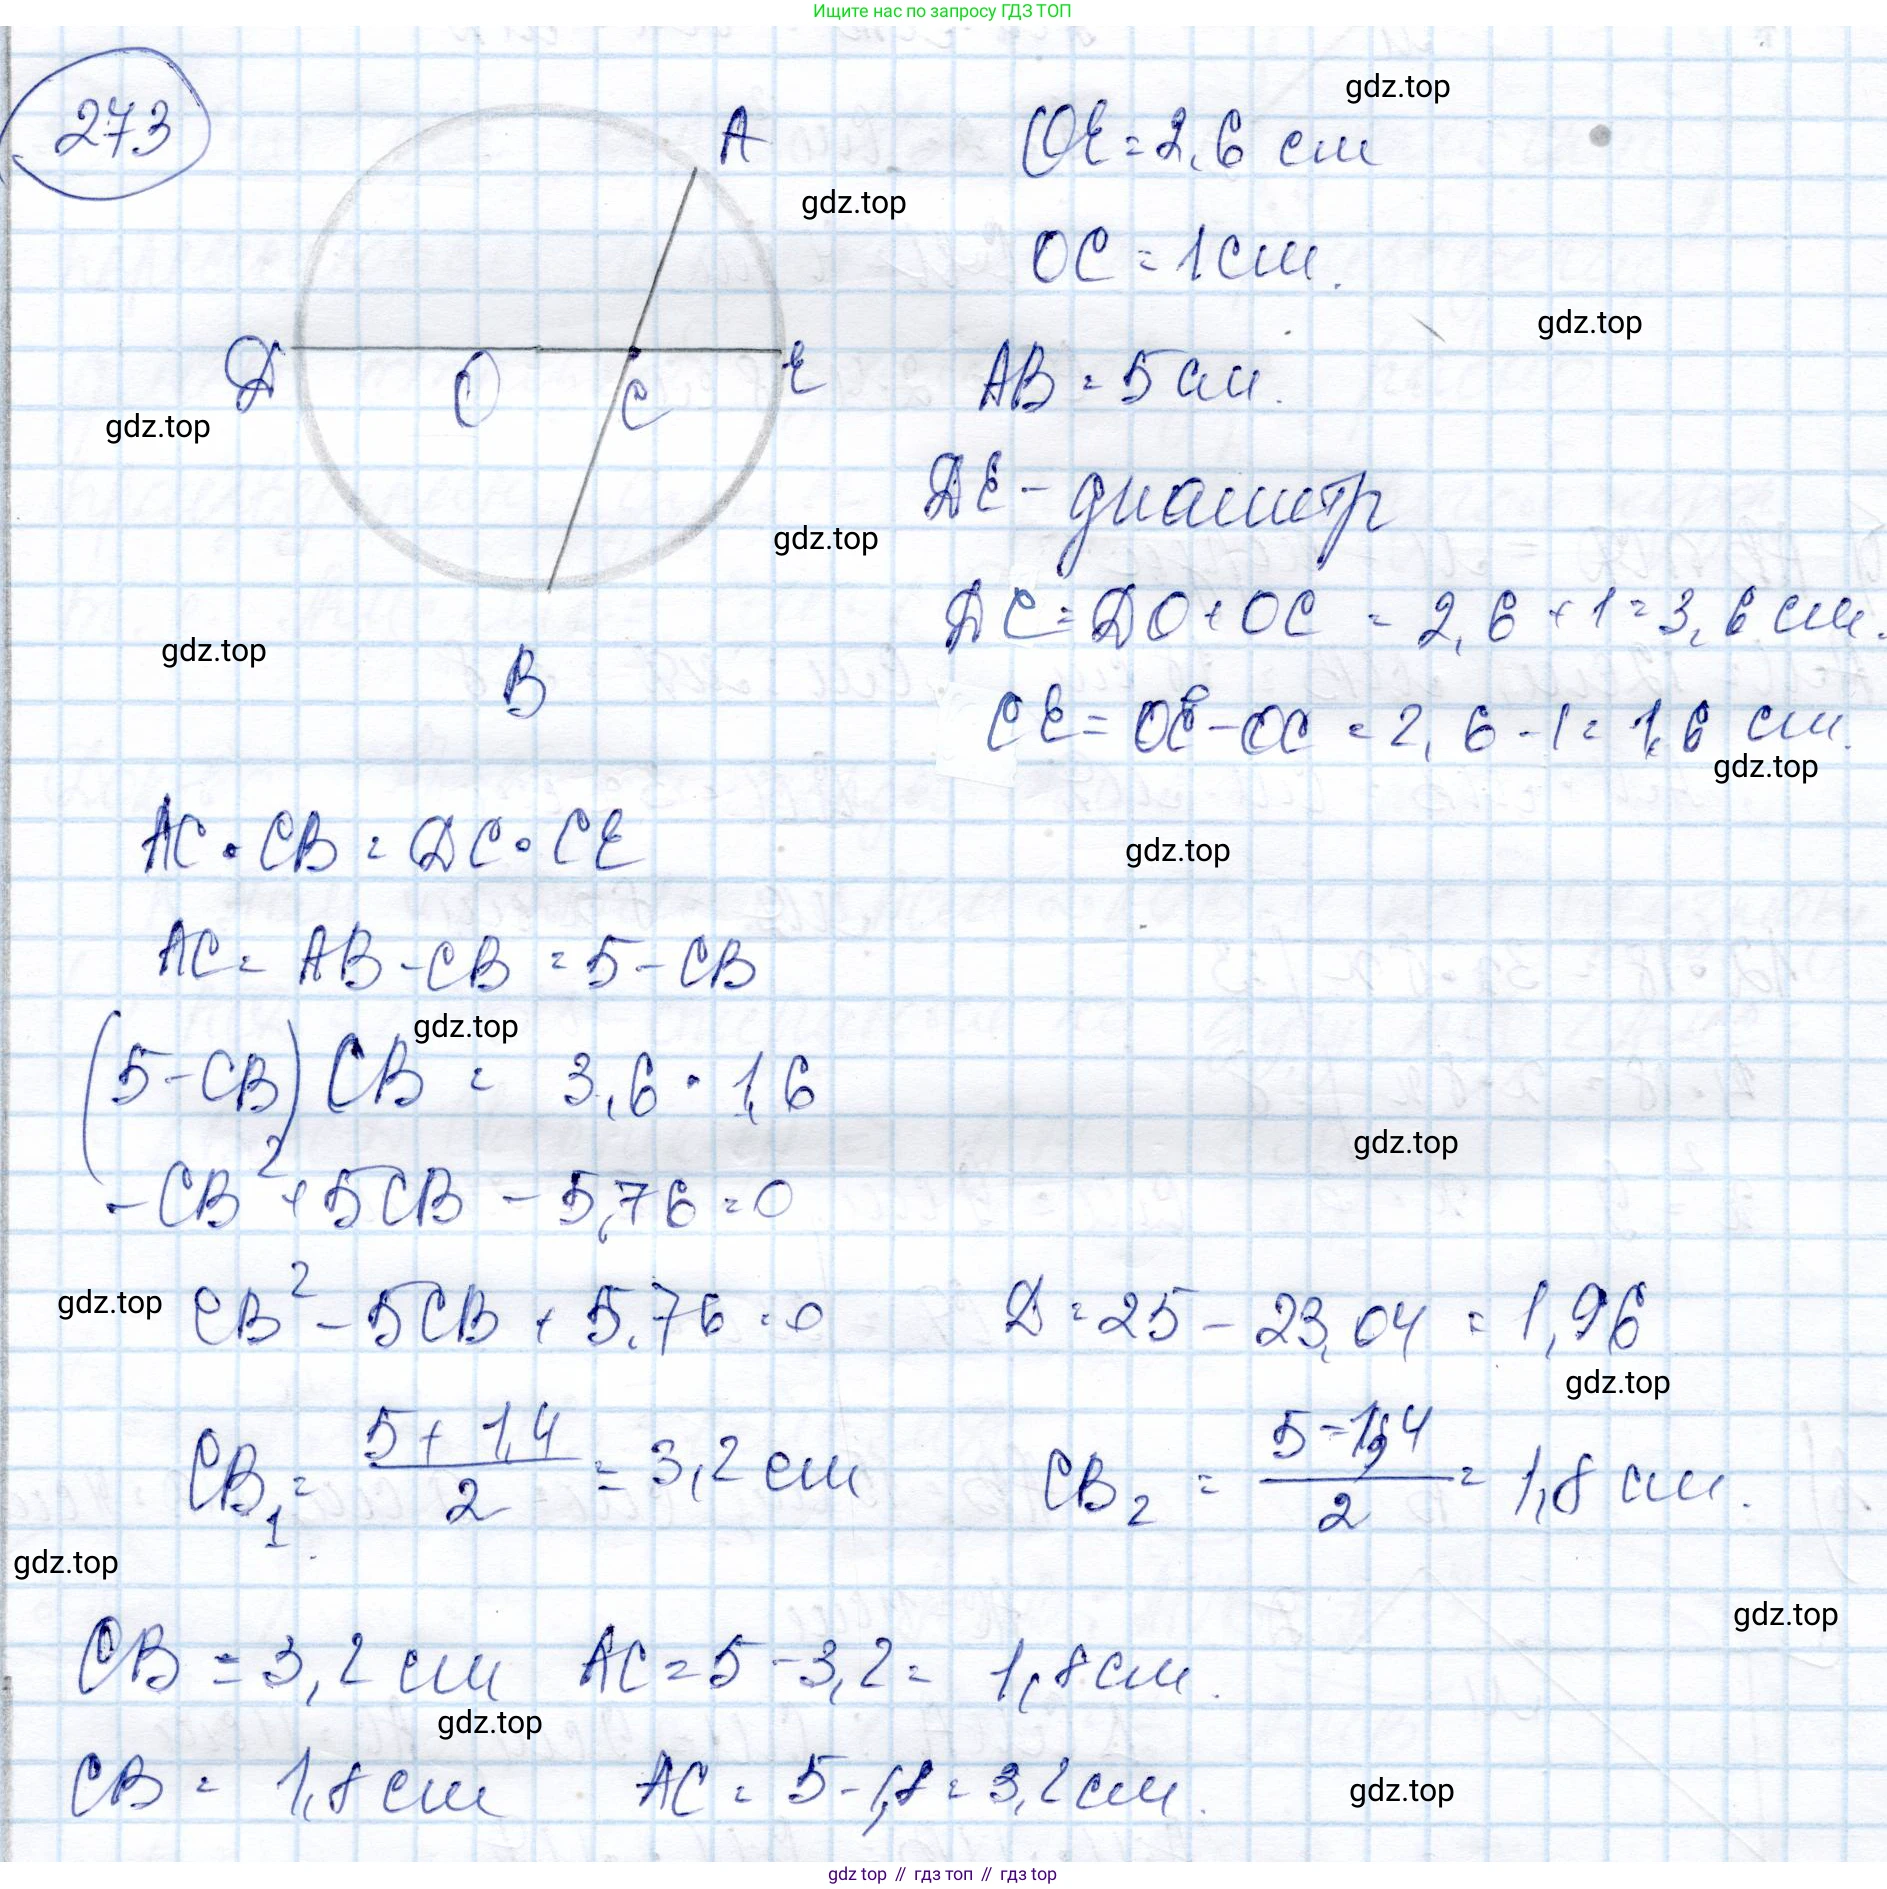 Ищите нас по запросу ГДЗ ТОП
273
A
OE = 2,6 см
gdz.top
gdz.top
OC = 1 см.
gdz.top
Д
O
C
E
AB = 5 см.
gdz.top
ДE - диаметр
gdz.top
ДC = ДO + OC = 2,6 + 1 = 3,6 см.
gdz.top
B
CE = OE - OC = 2,6 - 1 = 1,6 см.
gdz.top
AC · CB = ДC · CE
gdz.top
AC = AB - CB = 5 - CB
gdz.top
(5 - CB) CB = 3,6 · 1,6
gdz.top
- CB² + 5CB - 5,76 = 0
gdz.top
CB² - 5CB + 5,76 = 0 Д = 25 - 23,04 = 1,96
gdz.top
CB₁ = (5 + 1,4)/2 = 3,2 см CB₂ = (5 - 1,4)/2 = 1,8 см.
gdz.top
gdz.top
CB = 3,2 см AC = 5 - 3,2 = 1,8 см.
gdz.top
CB = 1,8 см AC = 5 - 1,8 = 3,2 см.
gdz.top
gdz top // гдз топ // гдз top